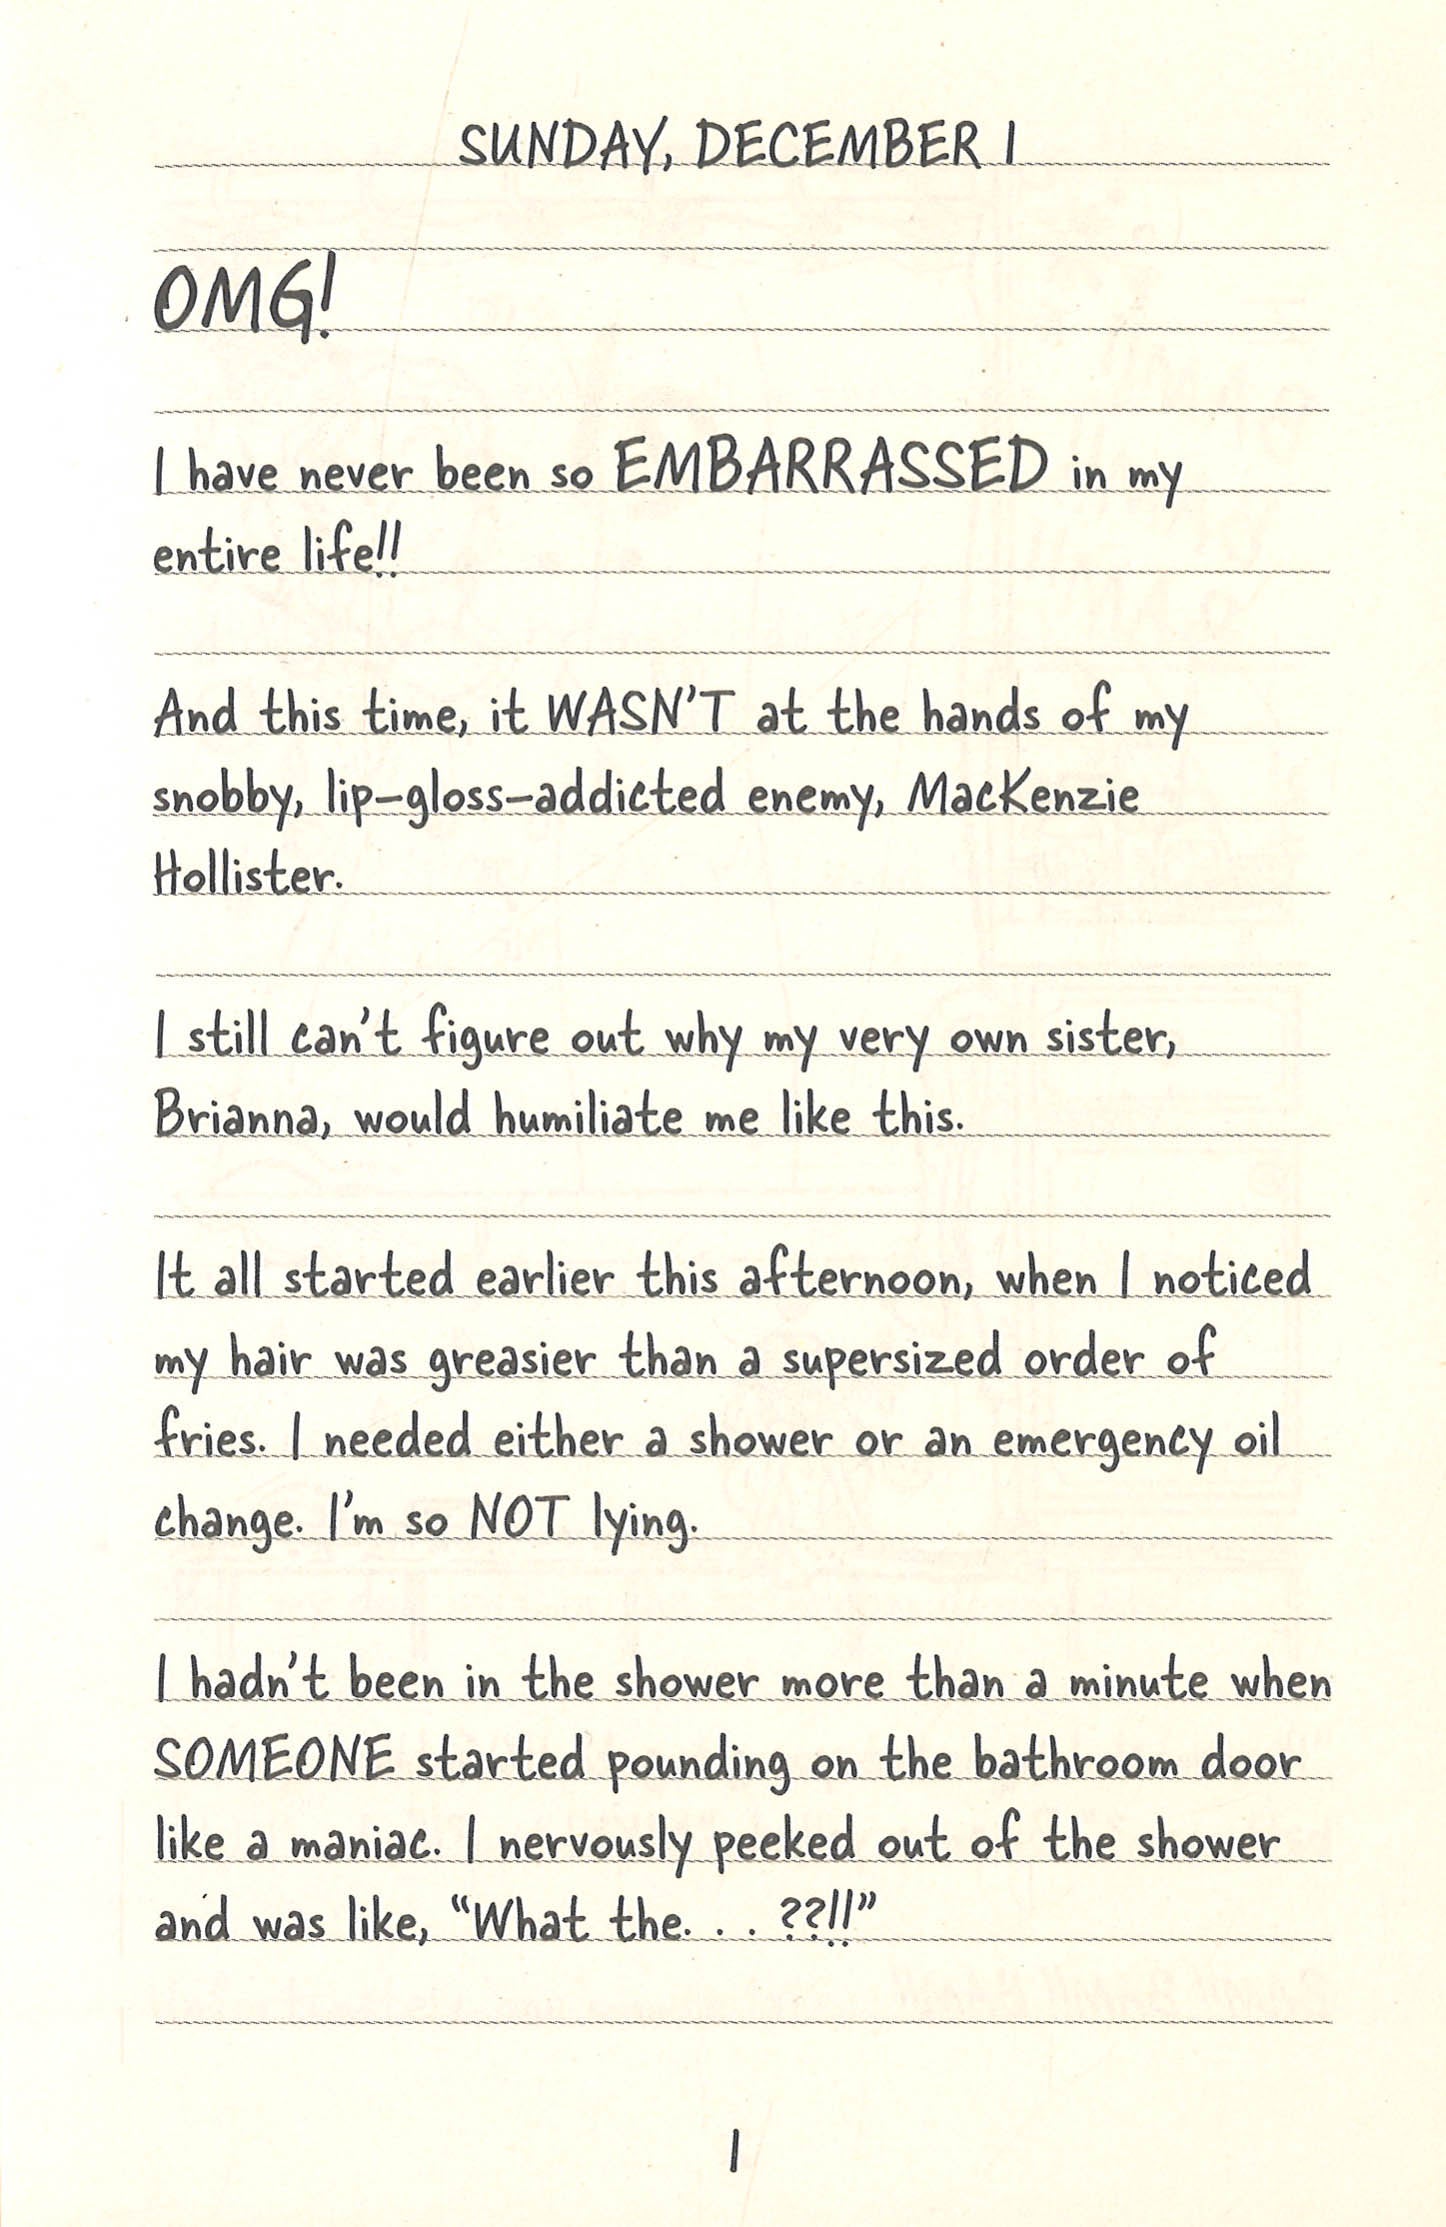 SUNDAY, DECEMBER 1
OMG!
I have never been so EMBARRASSED in my
entire life!!
And this time, it WASN'T at the hands of my
snobby, lip-gloss-addicted enemy, MacKenzie
Hollister.
I still can't figure out why my very own sister,
Brianna, would humiliate me like this.
It all started earlier this afternoon, when I noticed
my hair was greasier than a supersized order of
fries. I needed either a shower or an emergency oil
change. I'm so NOT lying.
I hadn't been in the shower more than a minute when
SOMEONE started pounding on the bathroom door
like a maniac. I nervously peeked out of the shower
and was like, “What the. . . ??!!”
1